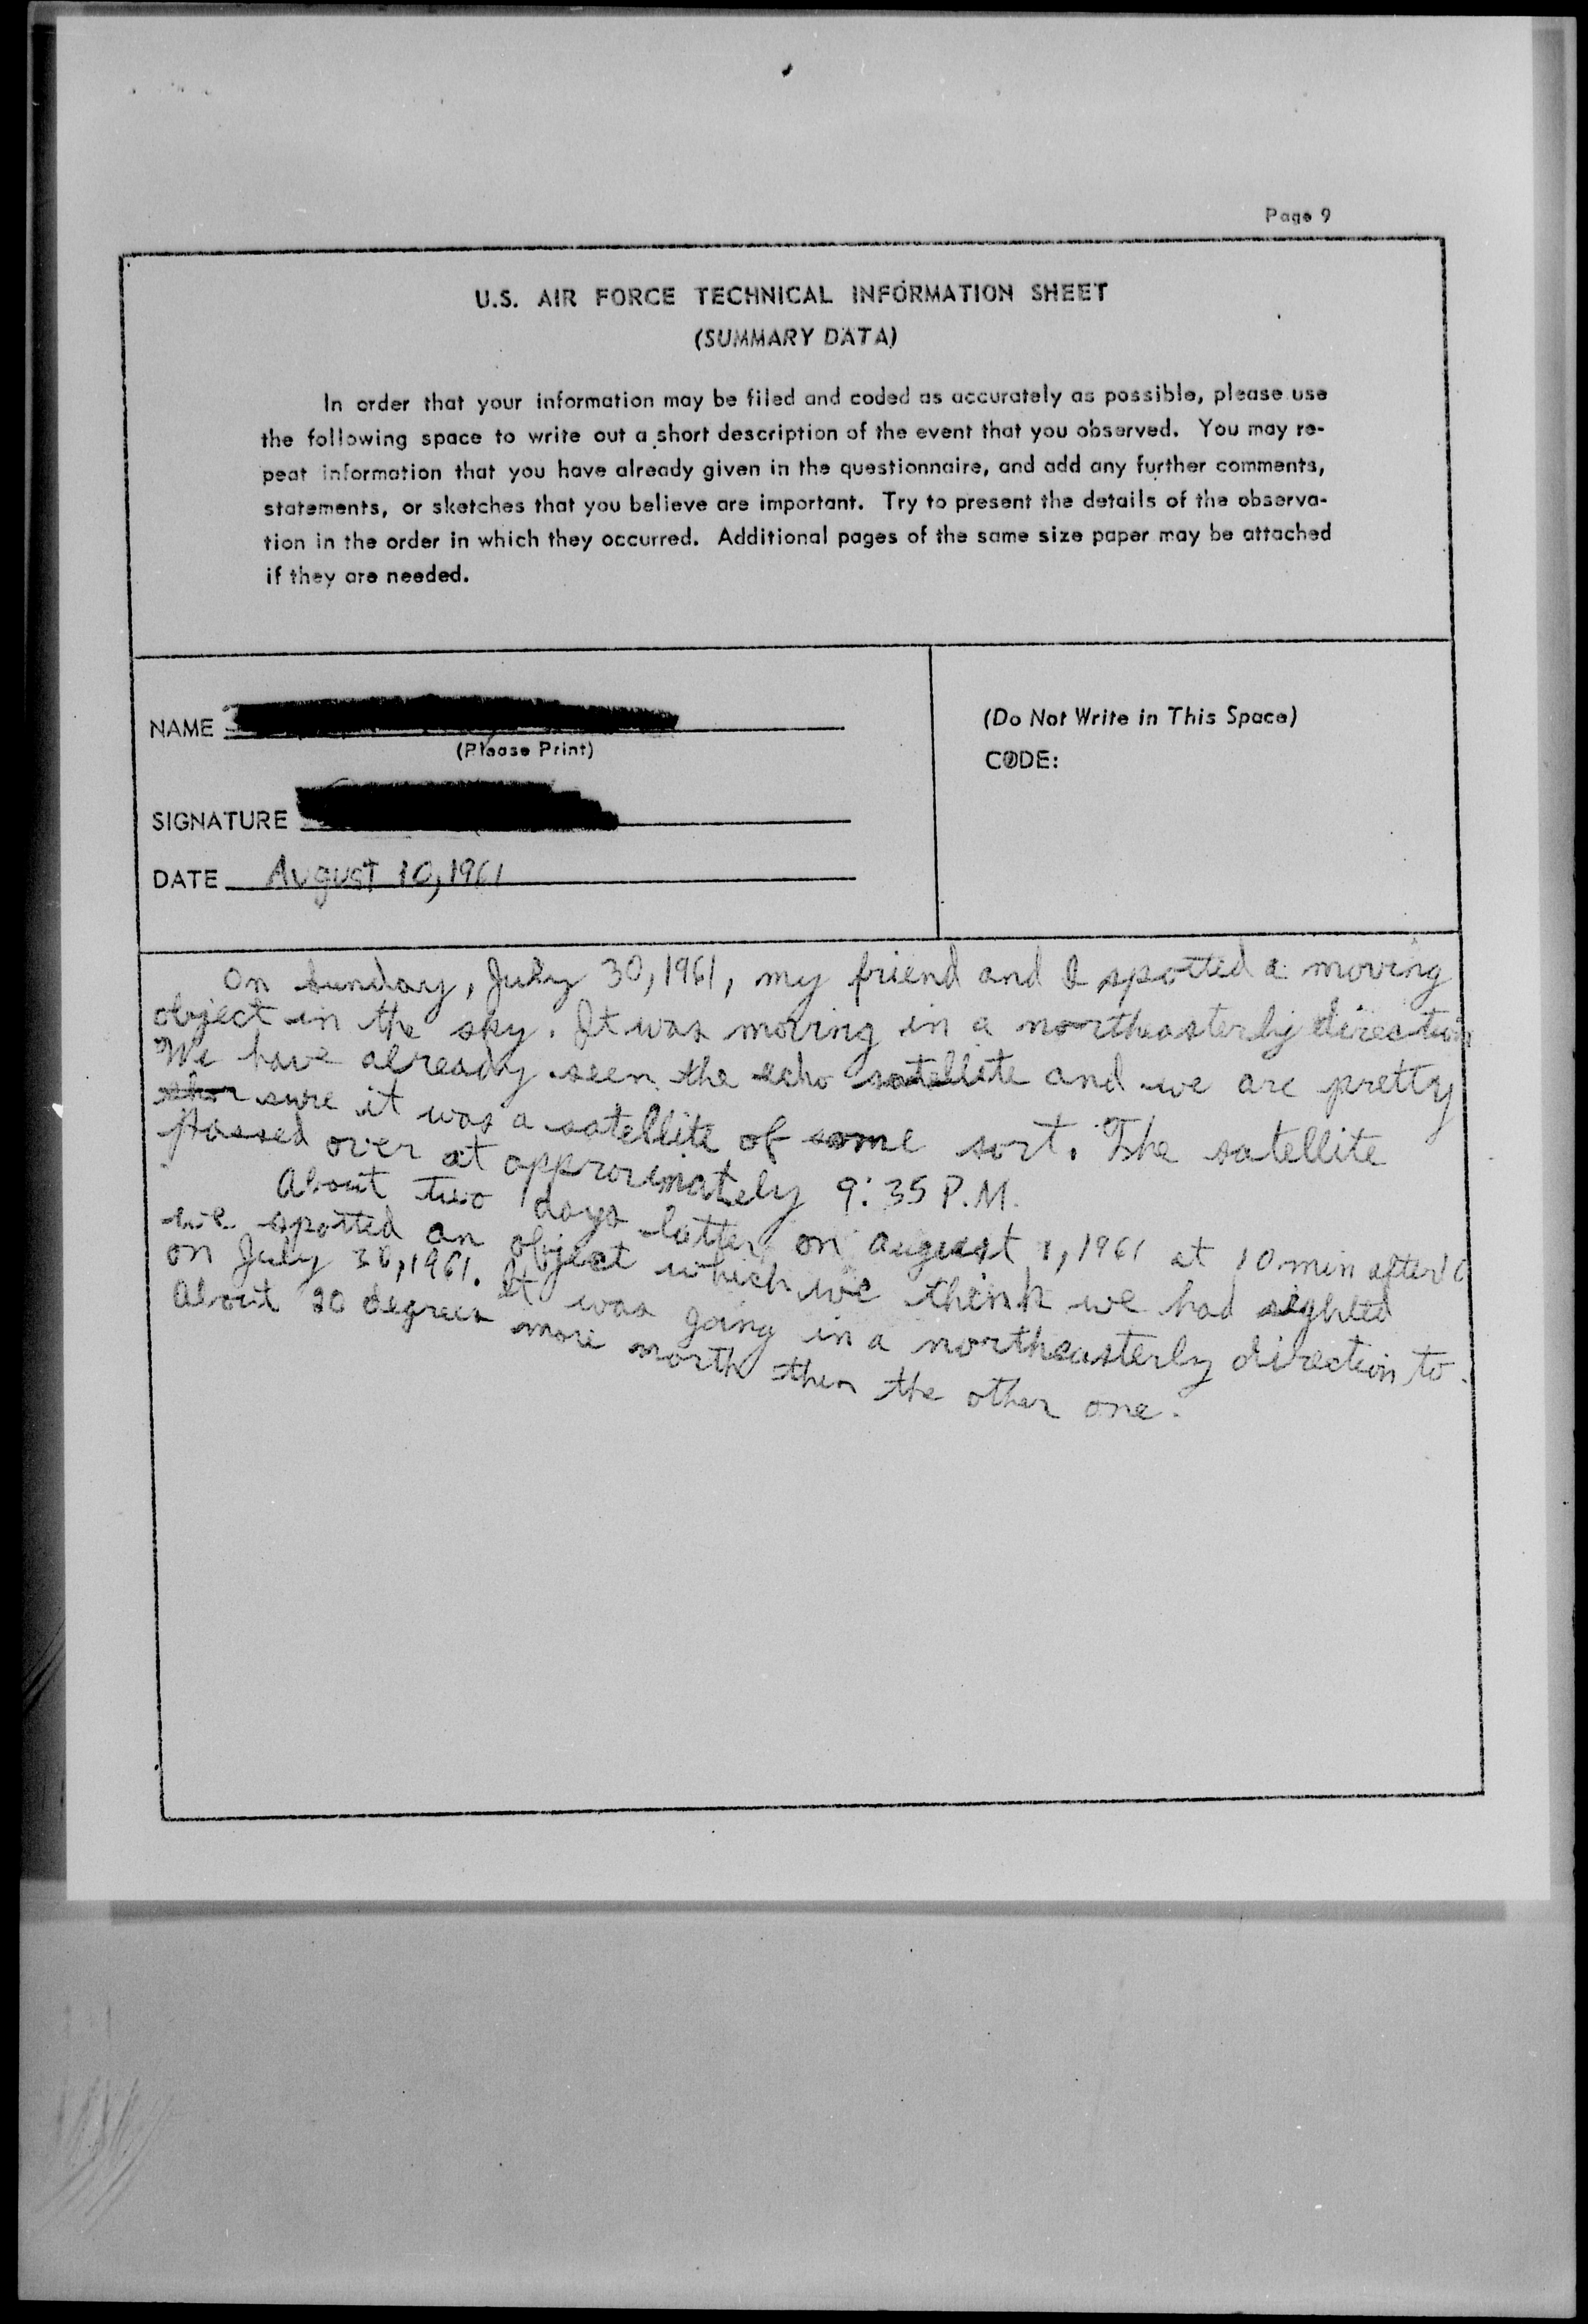 Page 9
U.S. AIR FORCE TECHNICAL INFORMATION SHEET
(SUMMARY DATA)
In order that your information may be filed and coded as accurately as possible, please use
the following space to write out a short description of the event that you observed. You may re-
peat information that you have already given in the questionnaire, and add any further comments,
statements, or sketches that you believe are important. Try to present the details of the observa-
tion in the order in which they occurred. Additional pages of the same size paper may be attached
if they are needed.
NAME
(Please Print)
SIGNATURE
DATE August 10, 1961
(Do Not Write in This Space)
CODE:
On Sunday, July 30, 1961, my friend and I spotted a moving
object in the sky. It was moving in a northeasterly direction
We have already seen the echo satellite and we are pretty
sure it was a satellite of some sort. The satellite
passed over at approximately 9:35 P.M.
About two days latter on August 1, 1961 at 10 min after
we spotted an object which we think we had sighted
on July 30, 1961. It was going in a northeasterly direction to
About 20 degrees more north then the other one.